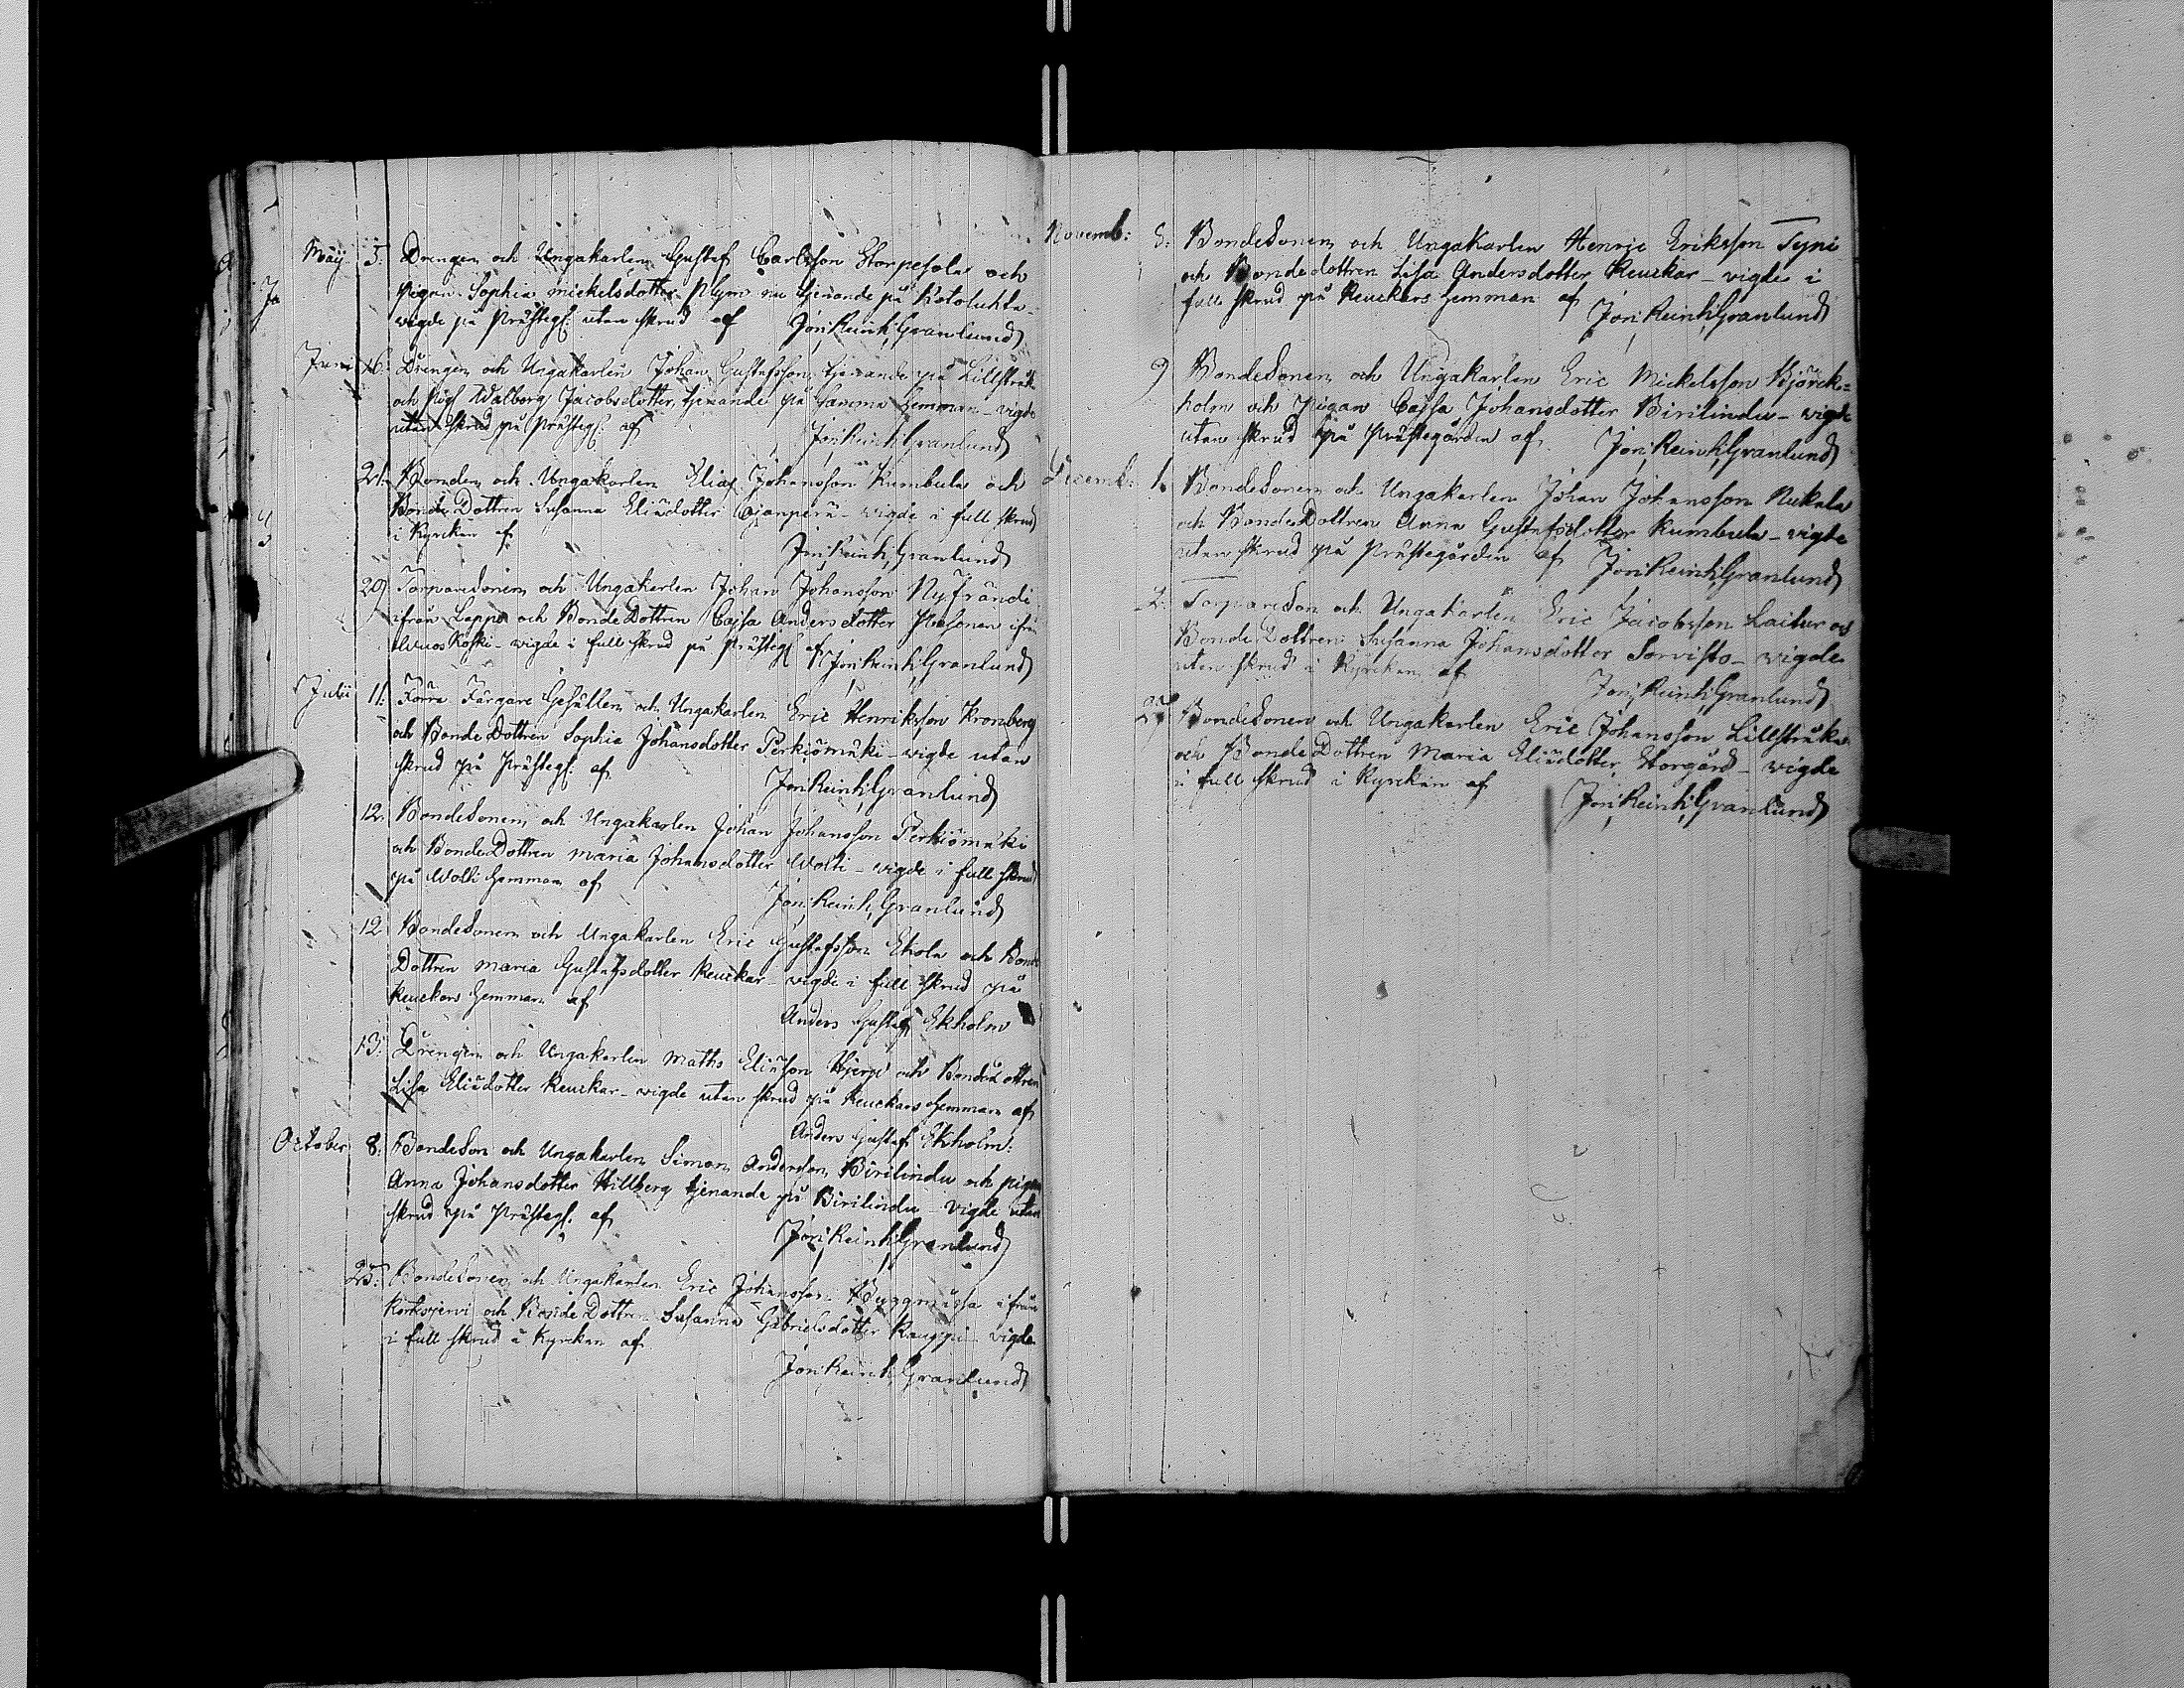 Maÿ 5. Drengen och Ungakarlen Gustaf Carlsson Storpesola och
Pigan Sophia Mickelsdotter Plym nu tjenande på Kotoluhta
vigde på Prästeg: utan skrud af Jon: Reinh: Granlund
Junii 16. Drengen och Ungakarlen Johan Gustafsson tjenande på Lillstråk
och Pig: Walborg Jacobsdotter, tjenande på samma Hemman - vigde
utan skrud på Prästeg: af Jon: Reinh: Granlund
24. Bonden och Ungakarlen Elias Johansson Kumbula och
Bonde Dottren Susanna Eliædotter - vigde i full skrud
i Kyrckan af
Jon: Reinh: Granlund
29. Torparesonen och Ungakarlen Johan Johansson
ifrån Lappo och Bonde Dottren Cajsa Andersdotter ifrån
Wuoskoski - vigde i full skrud på Prästeg: af Jon: Reinh: Granlund
Julii 11. Förra Färgare Gesällen och Ungakarlen Eric Henriksson Kronberg
och Bonde Dottren Sophia Johansdotter Perkiömäki - vigde utan
skrud på Prästeg: af
Jon: Reinh: Granlund
12. Bondesonen och Ungakarlen Johan Johansson Perkiömäki
och Bonde Dottren Maria Johansdotter Wolti - vigde i full skrud
på Wolti Hemman af
Jon: Reinh: Granlund
12 Bondesonen och Ungakarlen Eric Gustafsson Ekola och Bonde
Dottren Maria Gustafsdotter Keuckar - vigde i full skrud på
Keuckars Hemman af
Anders Gustaf Ekholm
13. Drengen och Ungakarlen Maths Eliæson och Bonde Dottren
Lisa Eliædotter Keuckar - vigde utan skrud på Keuckars Hemman af
Anders Gustaf Ekholm:
October 8. Bondeson och Ungakarlen Simon Andersson Birilindu och pigan
Anna Johansdotter Hillberg tjenande på Birilindu - vigde utan
skrud på Prästeg: af
Jon: Reinh: Granlund
25. Bondesonen och Ungakarlen Eric Johansson ifrån
Kortesjervi och Bonde Dottren Susanna Gabrielsdotter Kauppi - vigde
i full skrud i Kyrckan af
Jon: Reinh: Granlund
Novemb: 8. Bondesonen och Ungakarlen Henric Eriksson Typi
och Bondedottren Lisa Andersdotter Keuckar - vigde i
full skrud på Keuckars Hemman af Jon: Reinh: Granlund
9 Bondesonen och Ungakarlen Eric Mickelsson Björck=
holm och Pigan Cajsa Johansdotter Birilindu - vigde
utan skrud på Prästegården af Jon: Reinh: Granlund
Decemb: 1. Bondesonen och Ungakarlen Johan Johansson Nukala
och Bonde Dottren Anna Gustafsdotter Kumbula - vigde
utan skrud på Prästegården af Jon: Reinh: Granlund
2. Torpareson och Ungakarlen Eric Jacobsson Laitur och
Bonde Dottren Susanna Johansdotter Sorvisto - vigde
utan skrud i Kyrckan af
Jon: Reinh: Granlund
27 Bondesonen och Ungakarlen Eric Johansson Lillstråka
och Bonde Dottren Maria Eliædotter Storgård - vigde
i full skrud i Kyrckan af
Jon: Reinh: Granlund